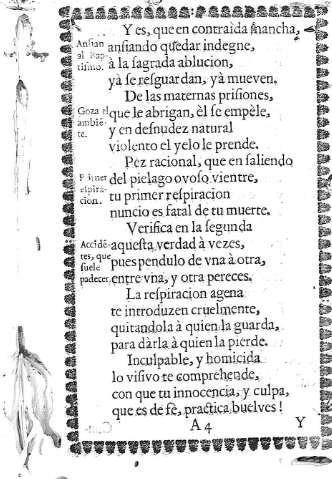 Y es, que en contraìda mancha,
Ansian al Bap tismo.
ansiando quedar indegne,
à la sagrada ablucion,
yà se resguardan, yà mueven.
De las maternas prisiones,
Goza el ambiē te.
que le abrigan, èl se empèle,
y en desnudez natural
violento el yelo le prende.
Pez racional, que en saliendo
Primer respira- ción.
del pielago ovoso vientre,
tu primer respiracion
nuncio es fatal de tu muerte.
Verifica en la segunda
Accidē tes, que suele padecer.
aquesta verdad à vezes,
pues pendulo de vna à otra,
entre vna, y otra pereces.
La respiracion agena
te introduzen cruelmente,
quitandola à quien la guarda,
para dàrla à quien la pierde.
Inculpable, y homicida
lo visivo te comprehende,
con que tu innocencia, y culpa,
que es de fè, practica buelves!
A 4 Y